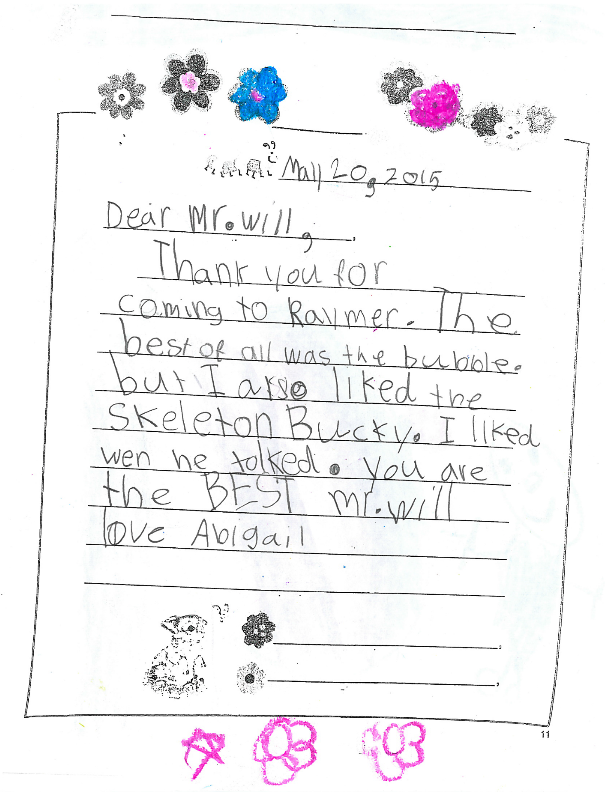 May 20, 2015
Dear Mr. Will,
Thank you for
coming to Raymer. The
best of all was the bubble.
but I arso liked the
skeleton Bucky. I liked
wen he tolked. you are
the BEST mr. will
love Abigail
11